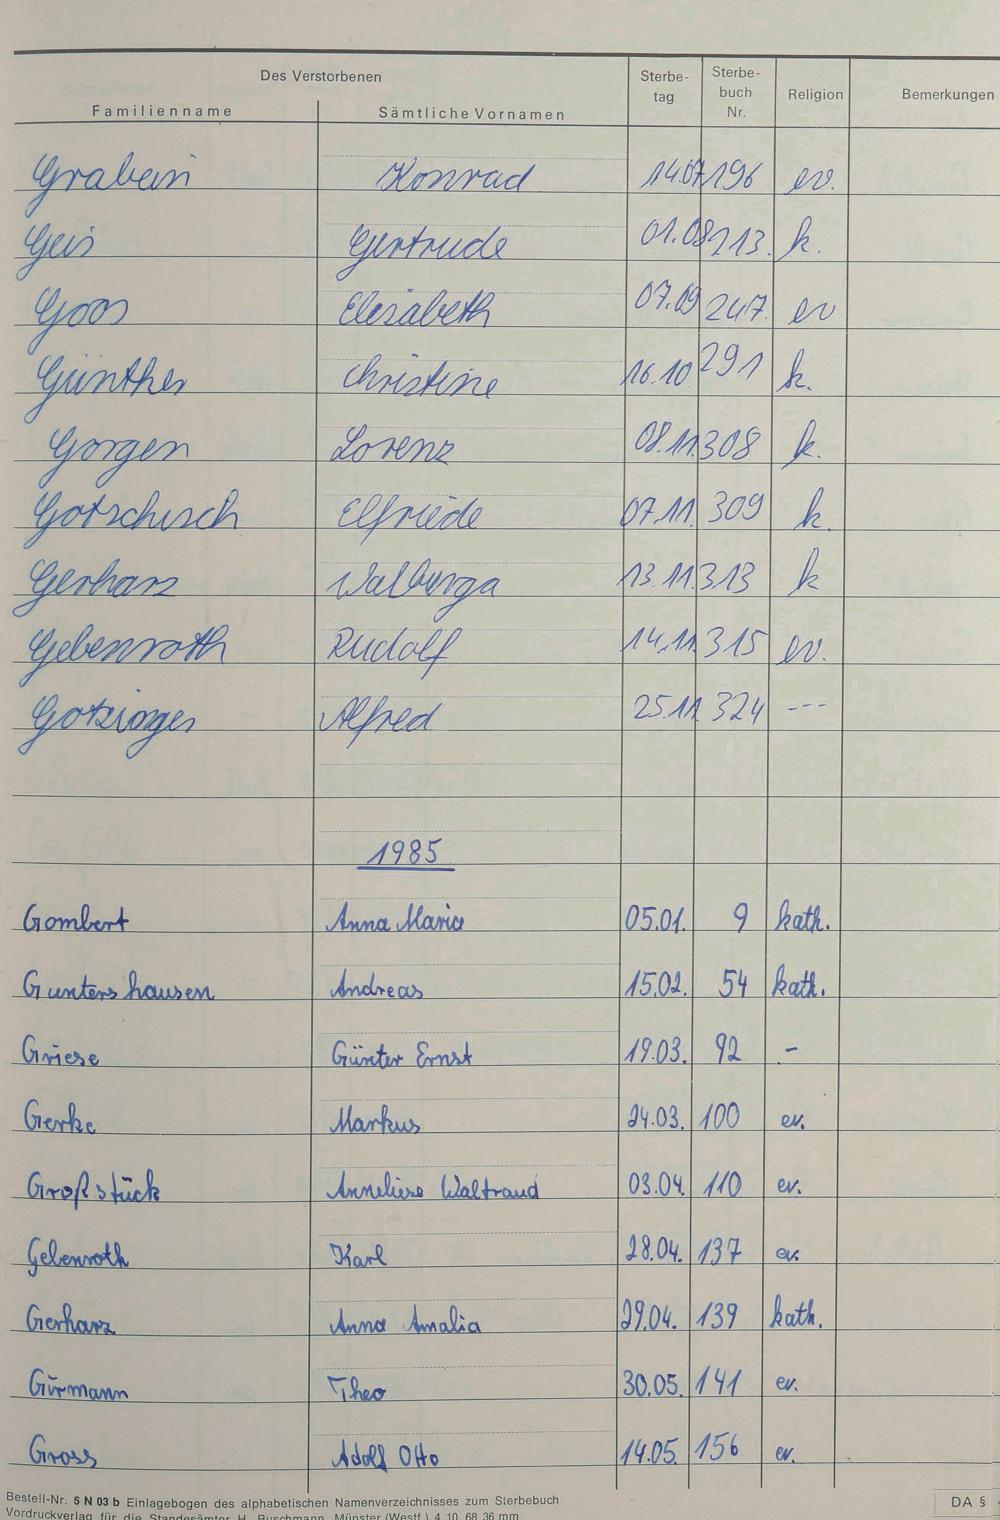 Des Verstorbenen Sterbe- Sterbe-
tag buch Religion Bemerkungen
Familienname Sämtliche Vornamen Nr.
Grabein Konrad 14.07 196 ev.
Geis Gertrude 01.08 213. k.
Goos Elisabeth 07.09 247. ev
Günther Christine 16.10 291 k.
Gorgen Lorenz 08.11. 308 k.
Gotschisch Elfriede 07.11. 309 k.
Gerharz Walburga 13.11. 313 k
Gebenroth Rudolf 14.11. 315 ev.
Gotzinger Alfred 25.11. 324 ---
1985
Gombert Anna Maria 05.01. 9 kath.
Guntershausen Andreas 15.02. 54 kath.
Griese Günter Ernst 19.03. 92 -
Gerke Markus 24.03. 100 ev.
Großstück Anneliese Waltraud 03.04. 110 ev.
Gebenroth Karl 28.04. 137 ev.
Gerharz Anna Amalia 29.04. 139 kath.
Girmann Theo 30.05. 141 ev.
Gross Adolf Otto 14.05. 156 ev.
Bestell-Nr. 5 N 03 b Einlagebogen des alphabetischen Namenverzeichnisses zum Sterbebuch DA §
Vordruckverlag für die Standesämter H. Buschmann, Münster (Westf.) 4.10. 68 36 mm